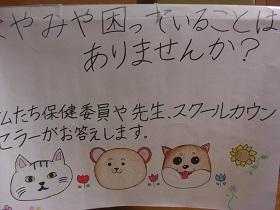 やみや困っていることは
ありませんか？
したち保健委員や先生、スクールカウン
セラーがお答えします。